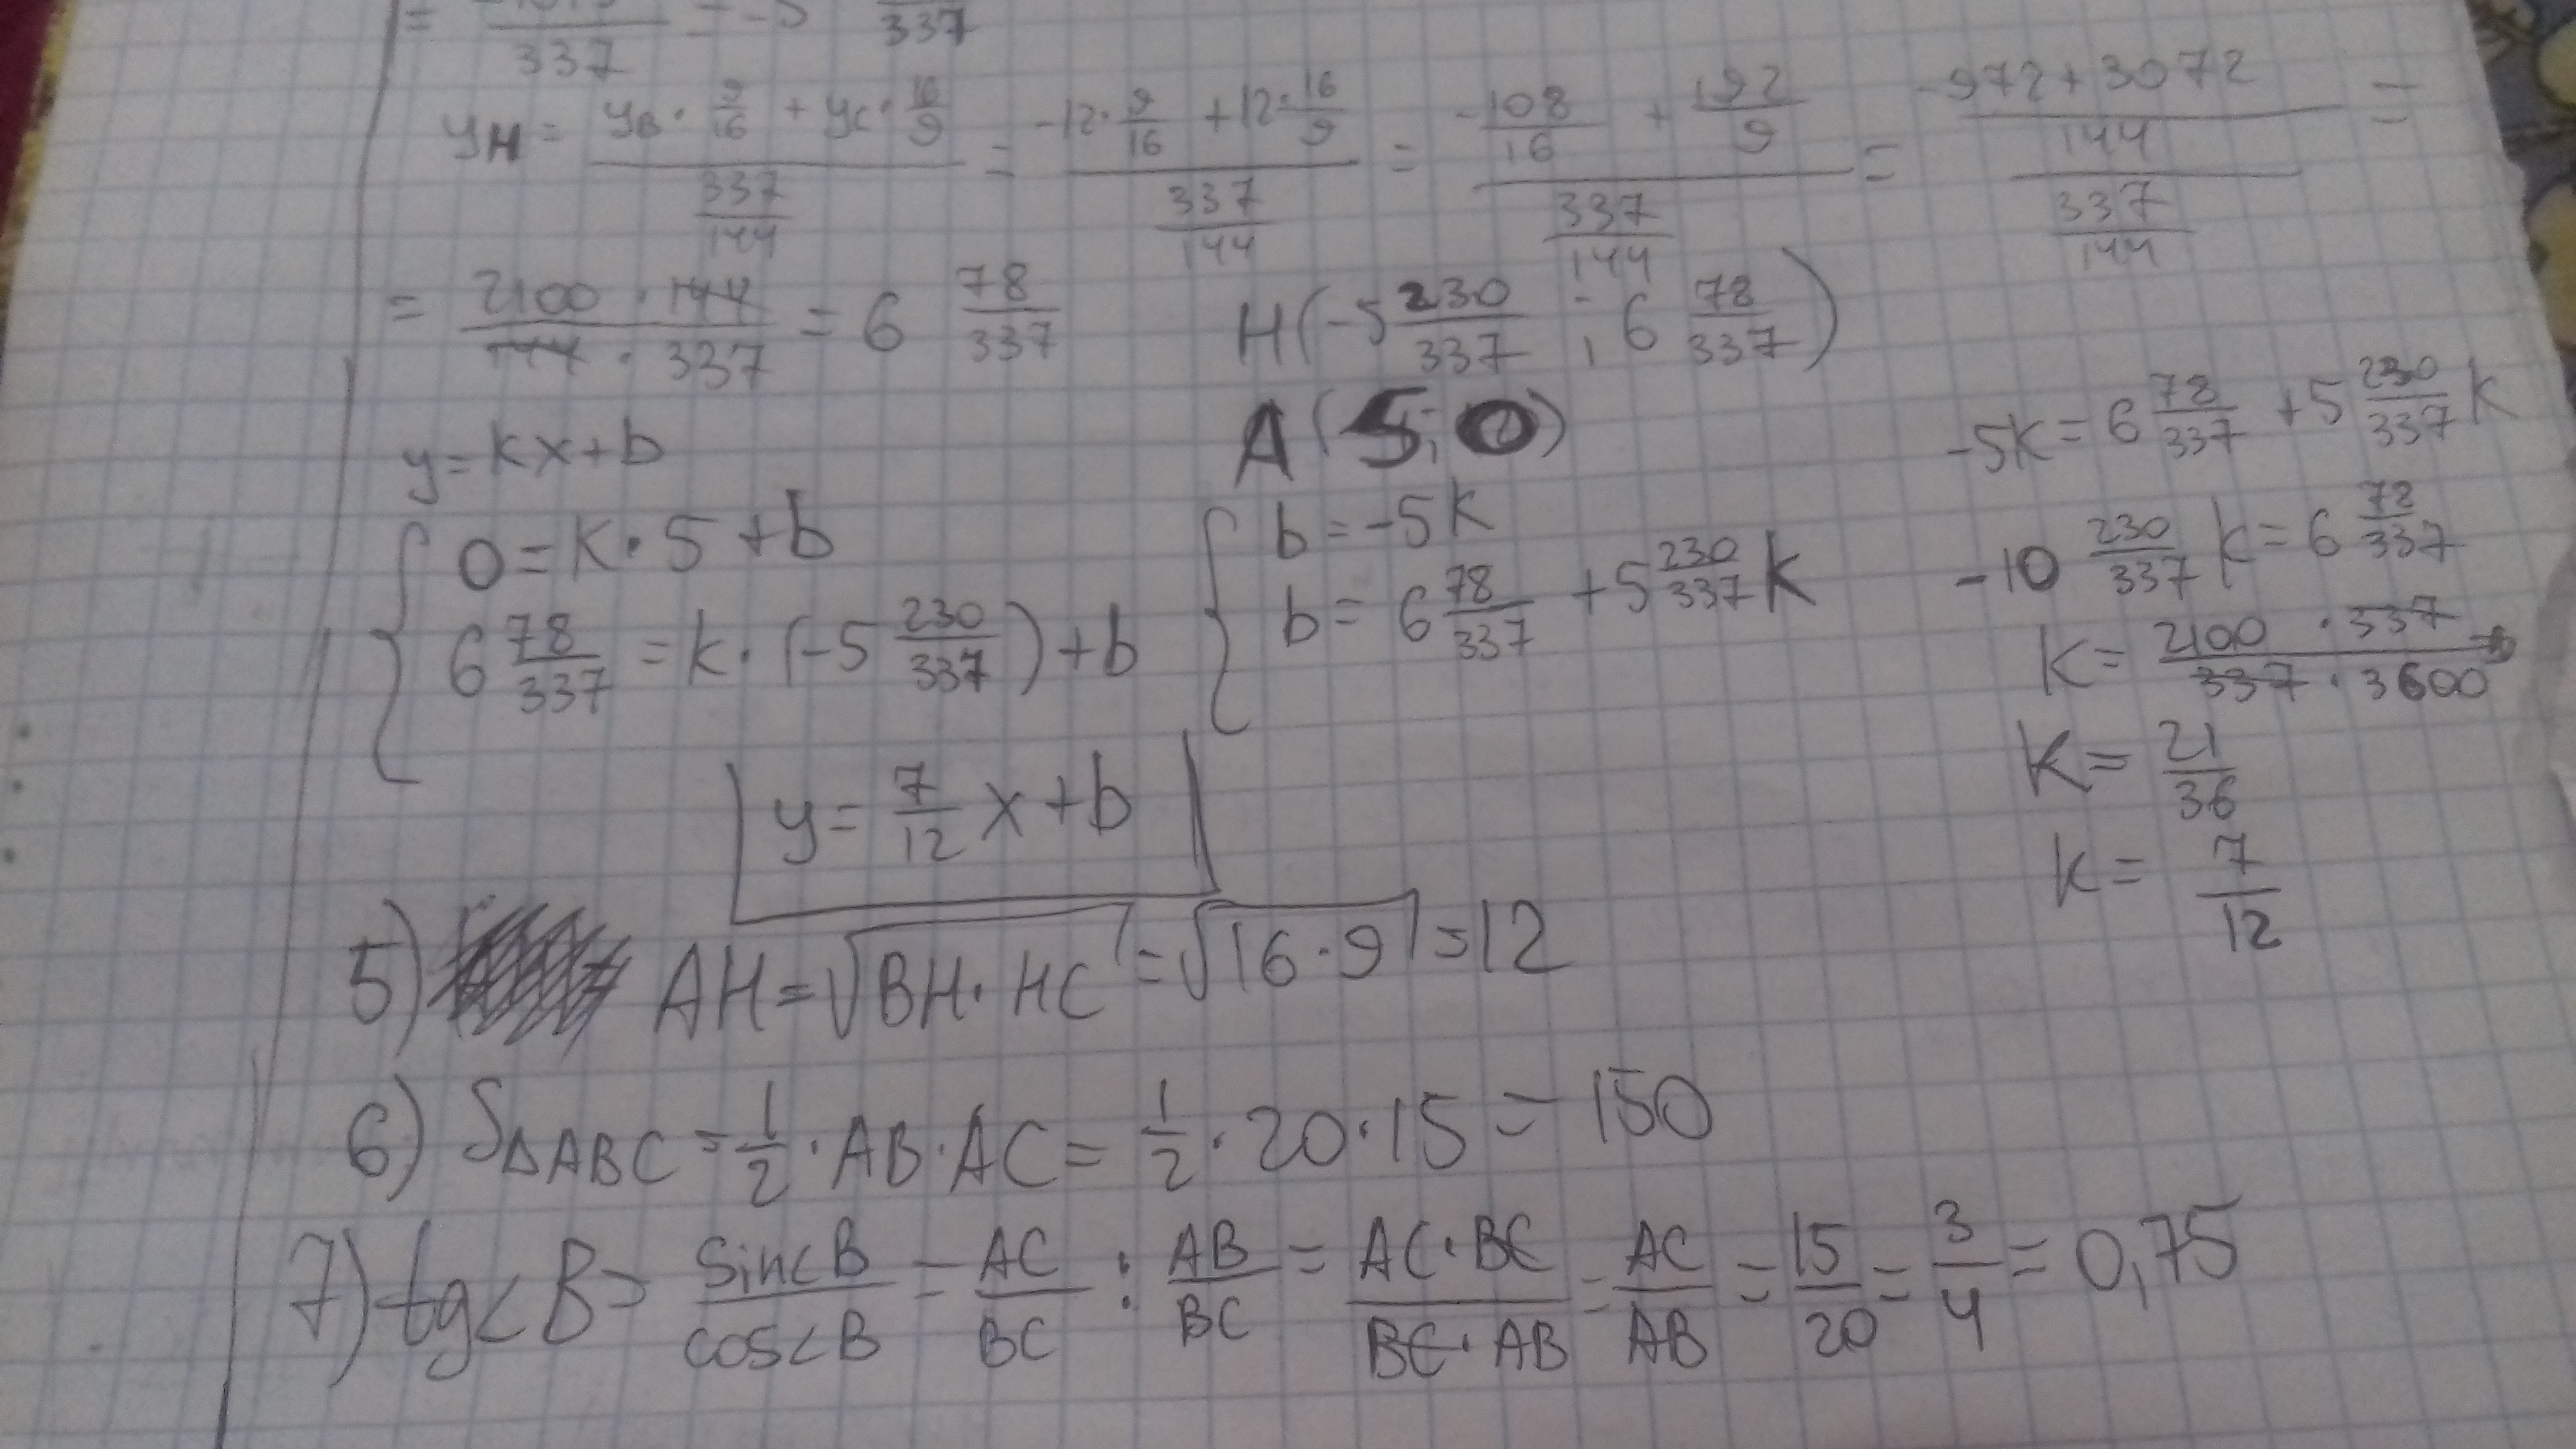 337 = -5 337
yн = (yв · 9/16 + yc · 16/9) / (337/144) = (-12 · 9/16 + 12 · 16/9) / (337/144) = (-108/16 + 192/9) / (337/144) = ((-972 + 3072)/144) / (337/144) =
= (2100 · 144)/(144 · 337) = 6 78/337   H(-5 230/337 ; 6 78/337)
y = kx + b   A(5; 0)   -5k = 6 78/337 + 5 230/337 k
{ 0 = k · 5 + b   { b = -5k   -10 230/337 k = 6 78/337
6 78/337 = k · (-5 230/337) + b   b = 6 78/337 + 5 230/337 k   k = (2100 · 337)/(337 · 3600)
k = 21/36
y = 7/12 x + b   k = 7/12
5) AH = √(BH · HC) = √(16 · 9) = 12
6) S△ABC = 1/2 · AB · AC = 1/2 · 20 · 15 = 150
7) tg<B = sin<B / cos<B = AC/BC : AB/BC = (AC · BC)/(BC · AB) = AC/AB = 15/20 = 3/4 = 0,75